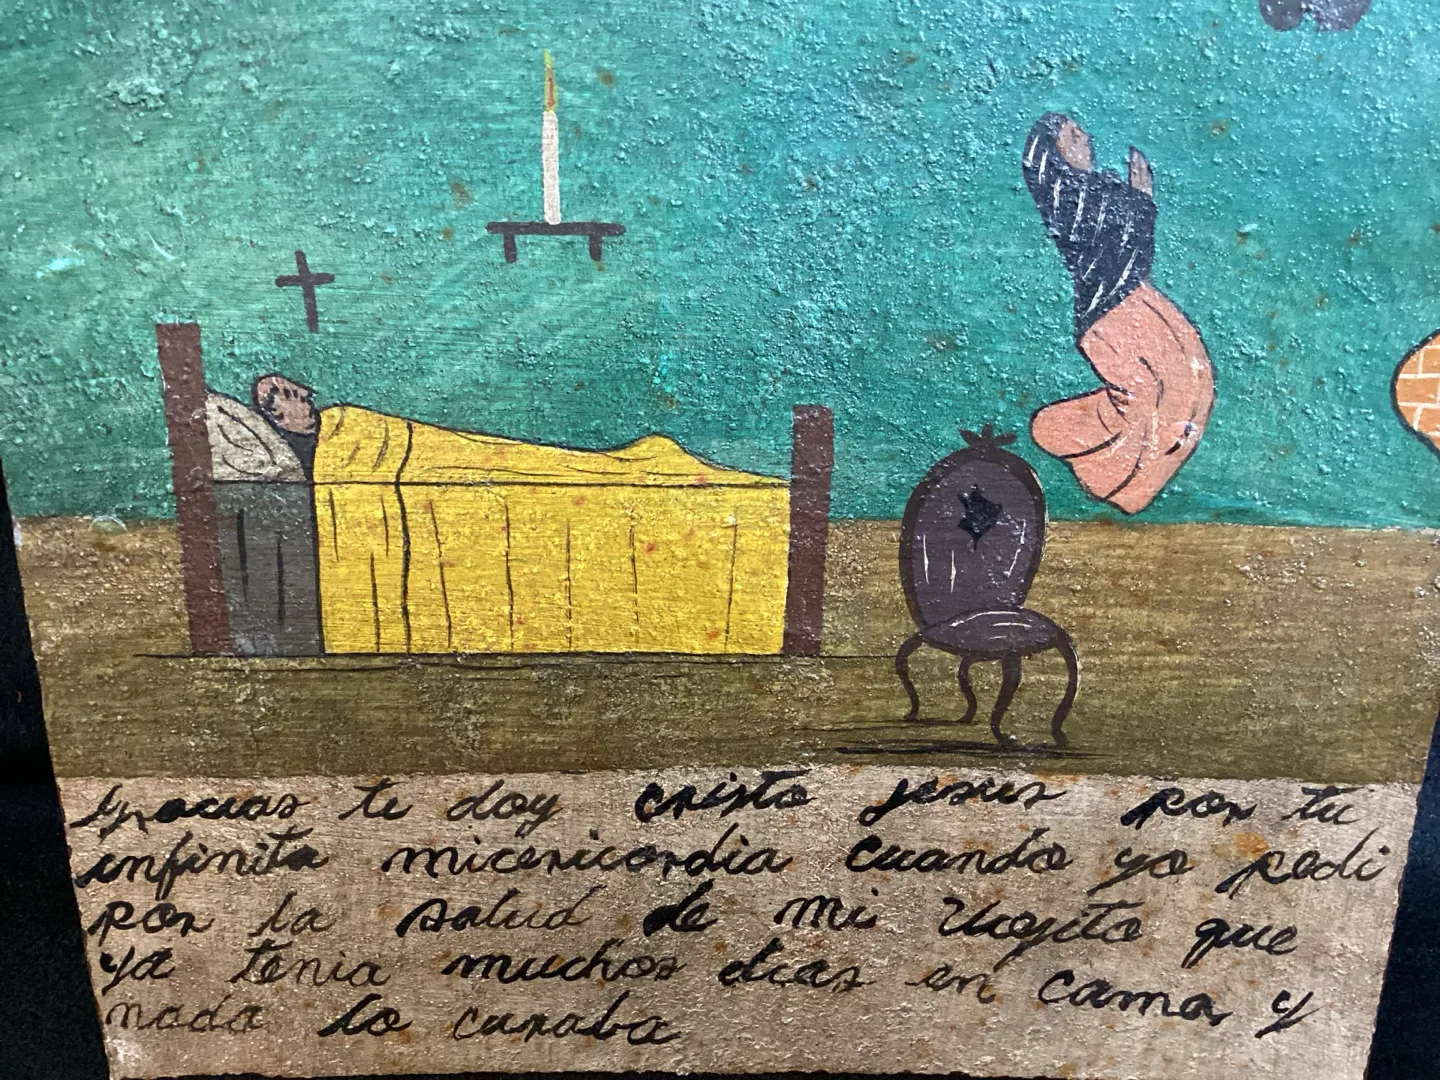 Gracias te doy cristo jesus por tu
infinita micericordia cuando yo pedi
por la salud de mi viejito que
ya tenia muchos dias en cama y
nada lo curaba